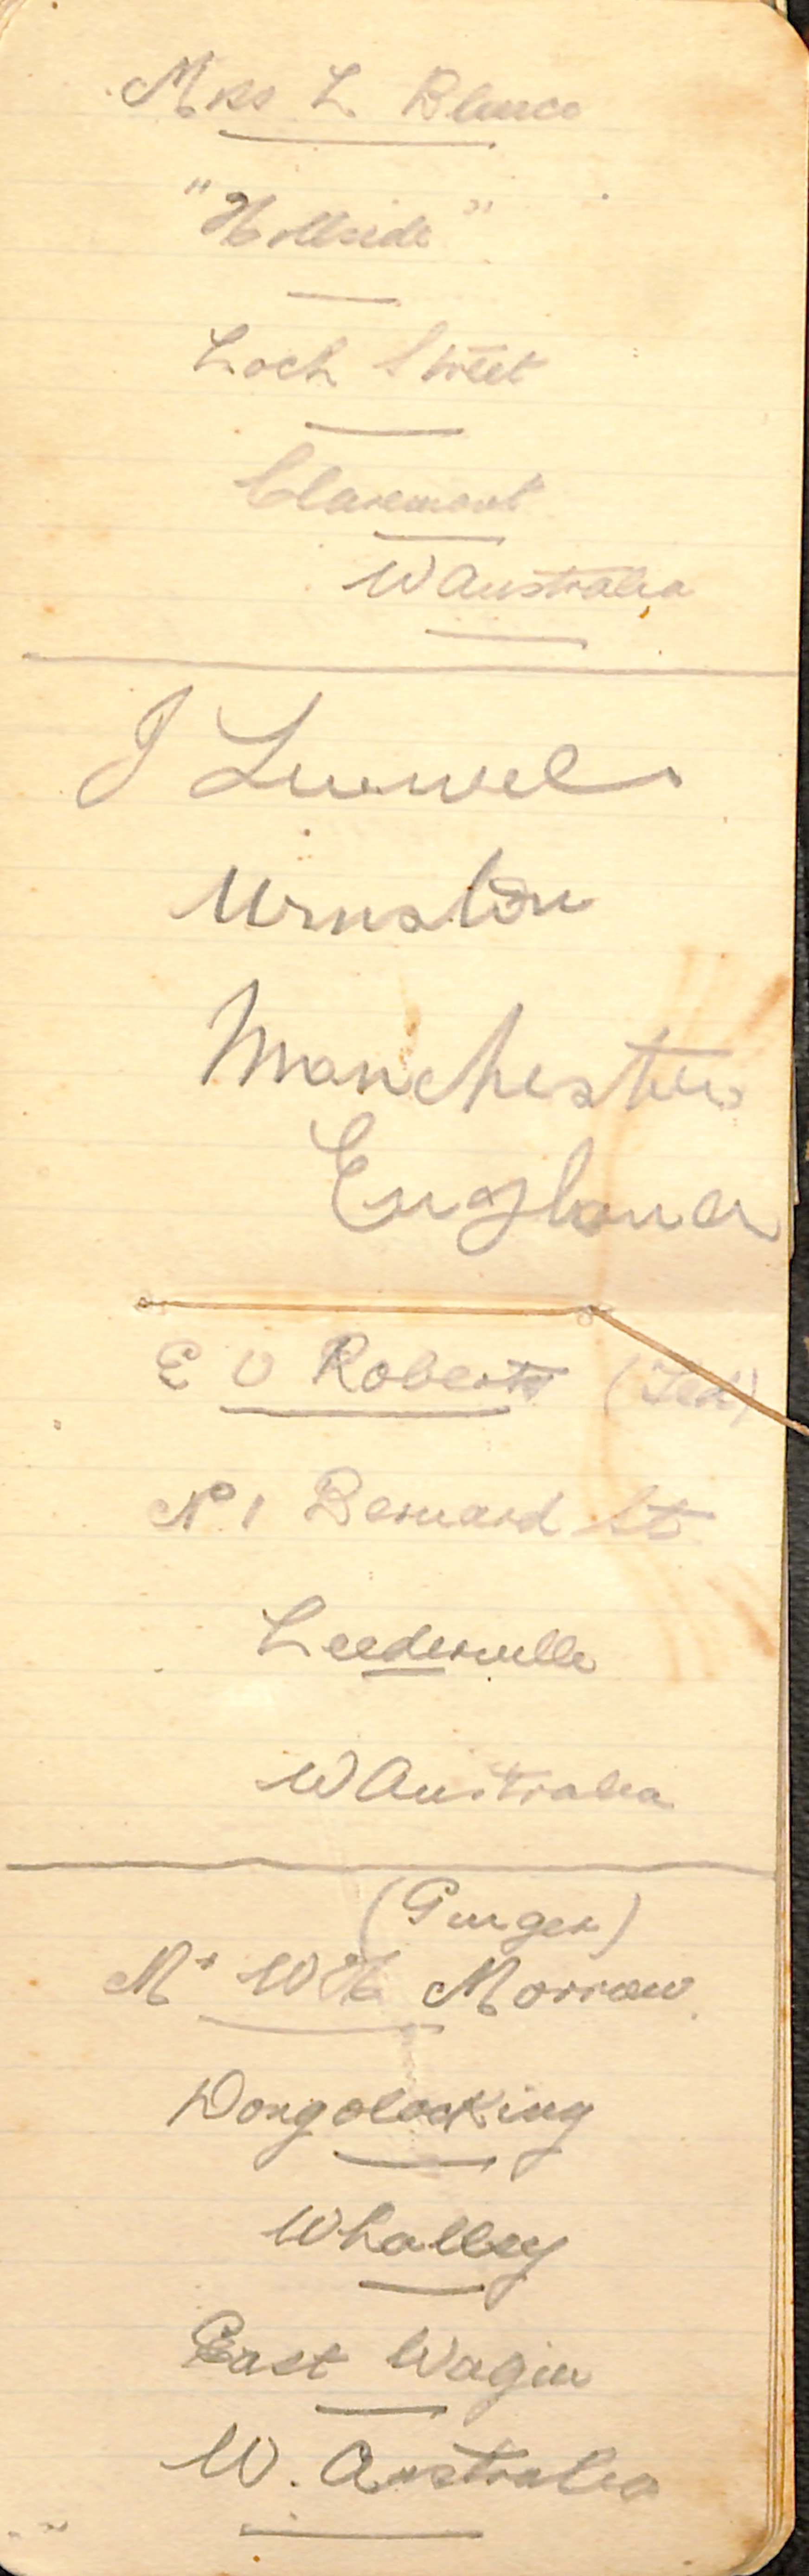 Mrs L Blance
"Hillside"
Loch Street
Claremont
W Australia
J
Urmston
Manchester
England
E O Roberts (Ted)
No 1 Bernard St
Leederville
W Australia
(Ginger)
Mr W H Morrow
Dongolocking
Whalley
East Wagin
W. Australia